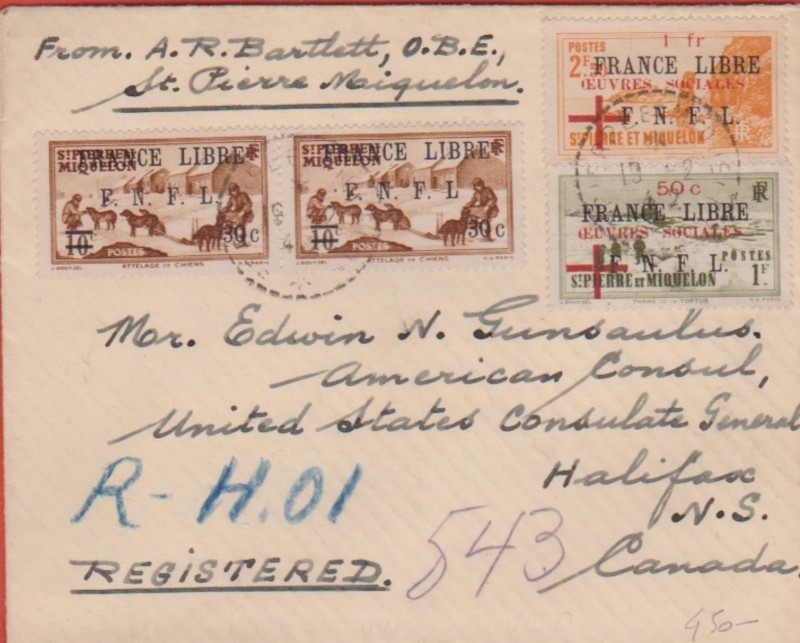 From. A. R. Bartlett, O.B.E.,
St. Pierre Miquelon.
1 fr
POSTES
2F.50
FRANCE LIBRE
ŒUVRES SOCIALES
F. N. F. L.
ST PIERRE ET MIQUELON
RF
ST PIERRE ET
MIQUELON
RF
FRANCE LIBRE
F. N. F. L.
10c
30 c
POSTES
ATTELAGE DE CHIENS
ST PIERRE ET
MIQUELON
RF
FRANCE LIBRE
F. N. F. L.
10c
30 c
POSTES
ATTELAGE DE CHIENS
50 c
RF
FRANCE LIBRE
ŒUVRES SOCIALES
POSTES
F. N. F. L.
ST PIERRE ET MIQUELON
1F.
PHARE DE LA TORTUE
Mr. Edwin N. Gunsaulus.
American Consul,
United States Consulate General
Halifax
N.S.
Canada.
R-H.01
REGISTERED.
543
450-